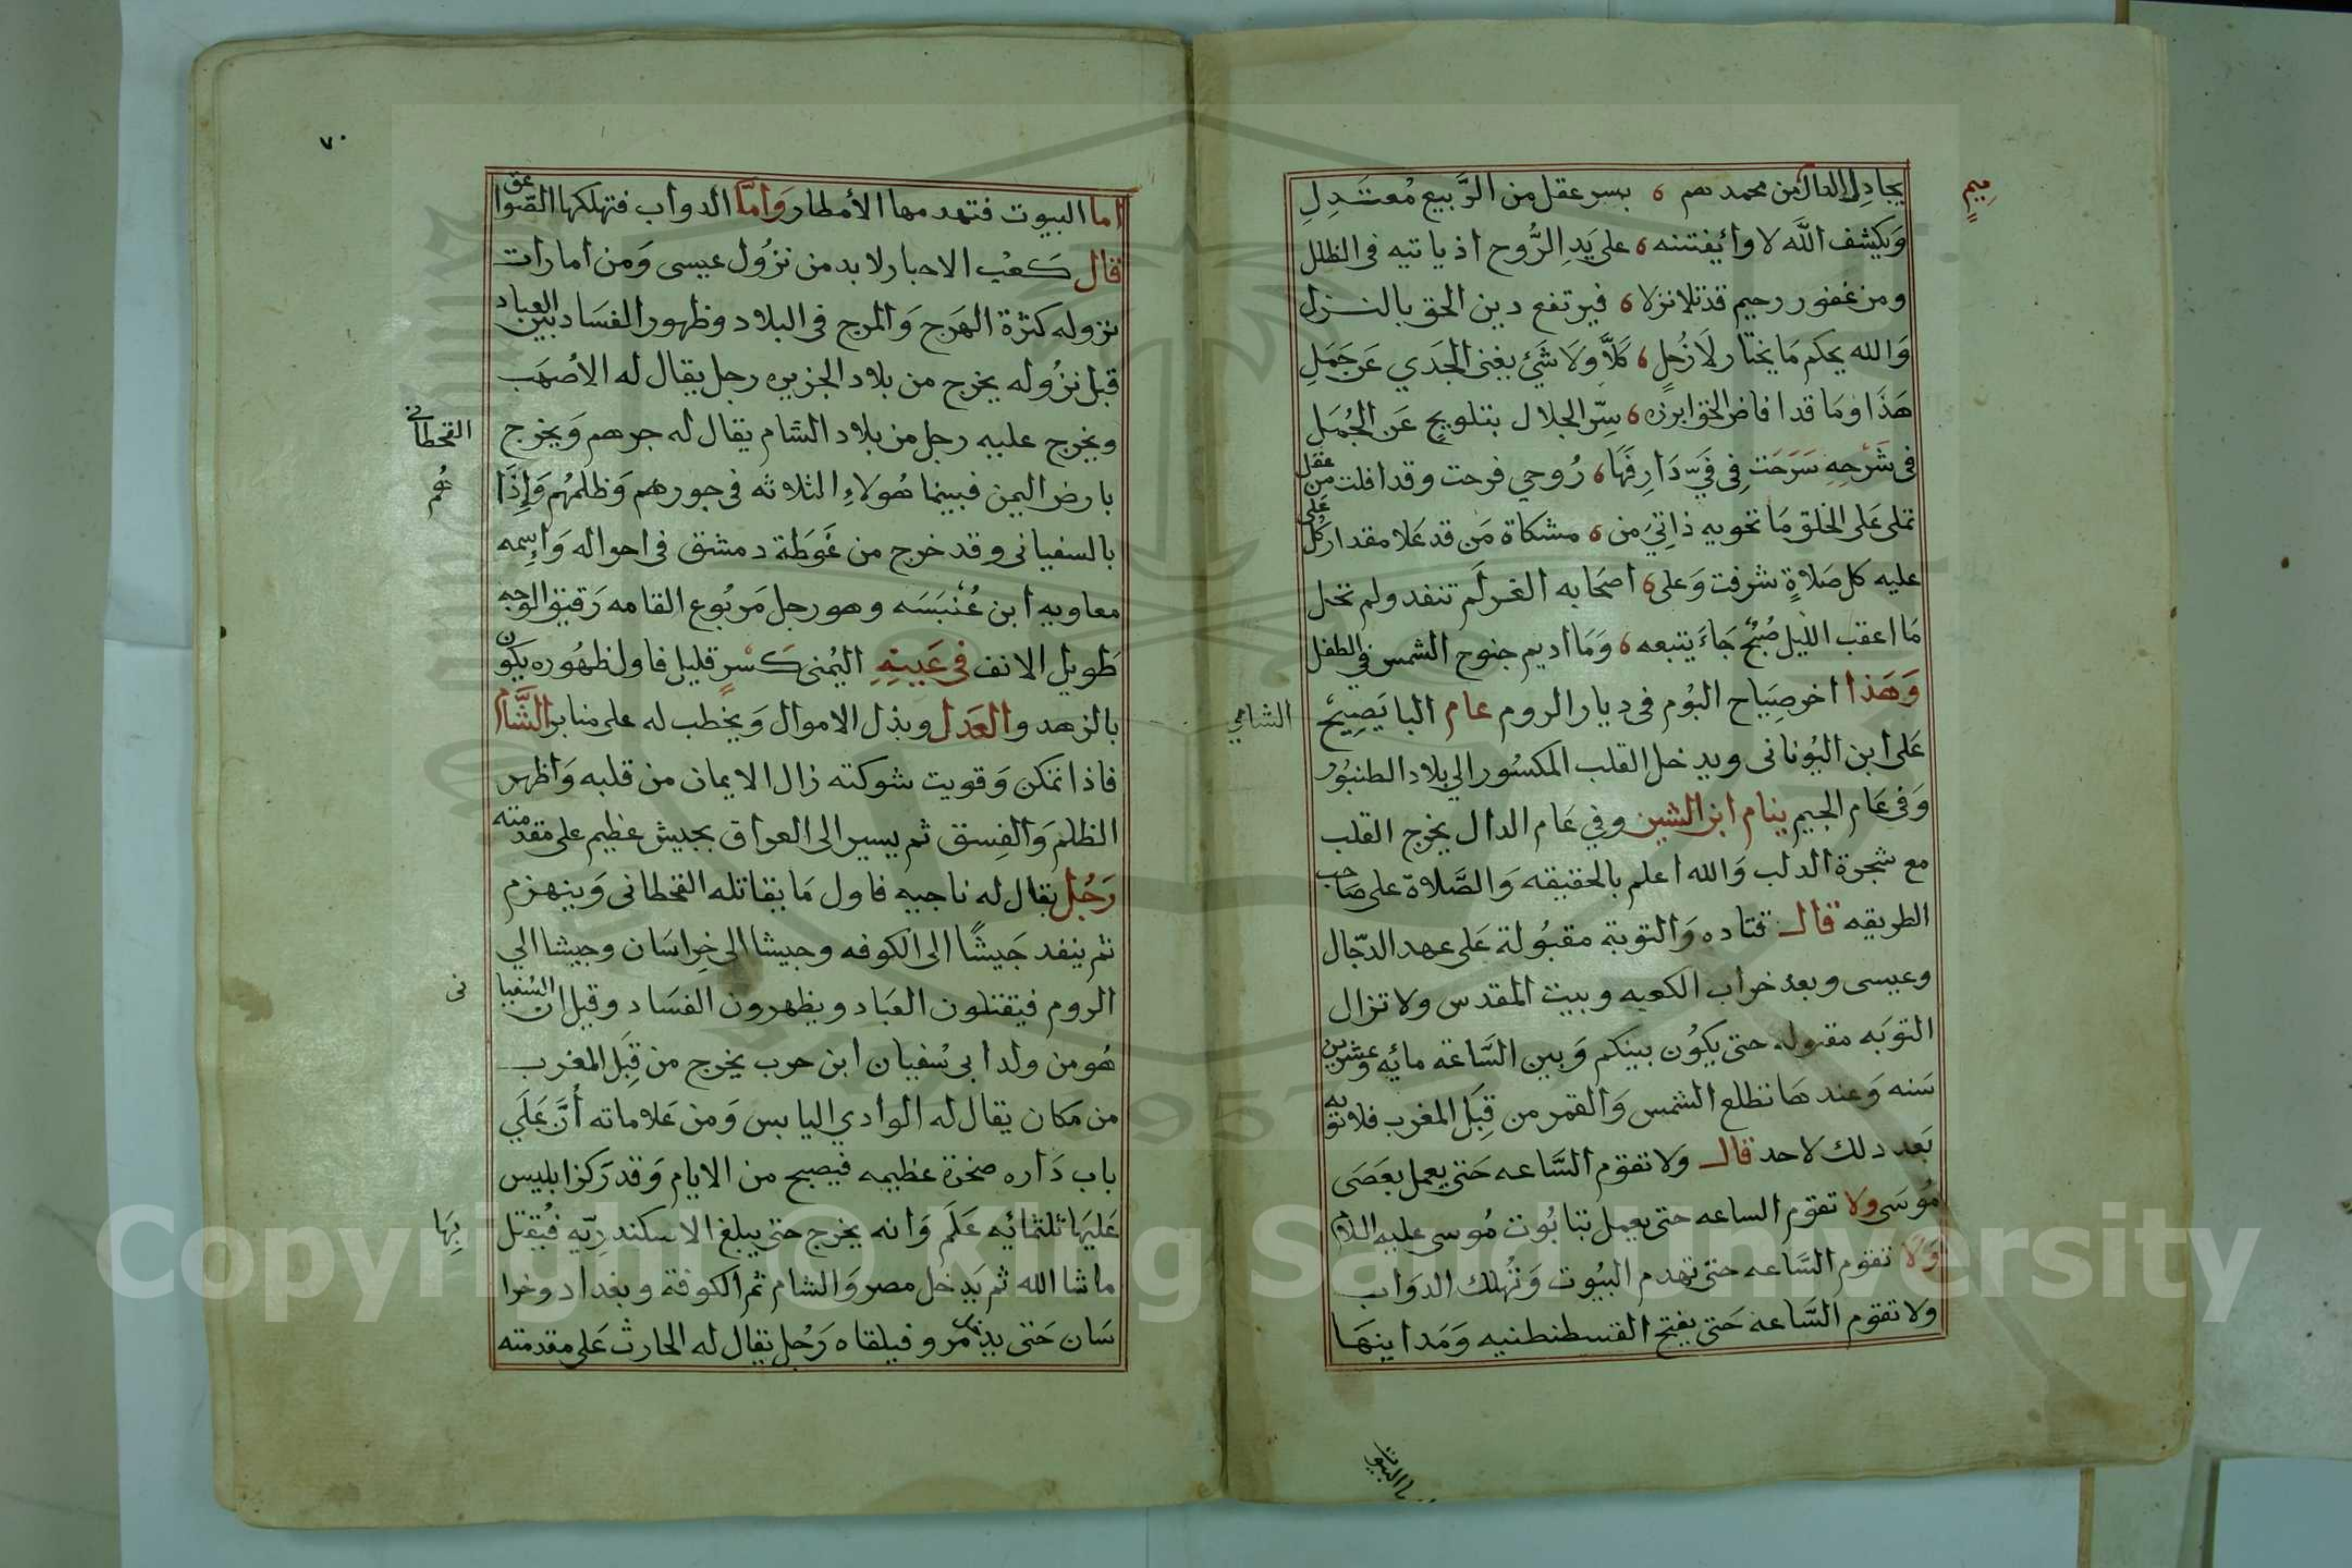 ميم
يجادل الدال من محمدهم ٥ بسر عقل من الربيع مُعتَدِلِ
وَيكشف الله لاوا ئيفتننه ٥ على يَدِ الرُّوح اذ ياتيه في الظلل
ومن غفور رحيم قد تلا نزلا ٥ فيرتفع دين الحق بالنزل
وَالله يحكم مَا يختار لَا زُحل ٥ كَلَّا ولَا شَيئ يغنى الجَدي عَن حَمَلِ
هَذَا وَمَا قد افاض الحق ابرزه ٥ سِرّ الجلال بتلويح عَن الجُمَل
في شَرْحِهِ سَرَحَت في فَيّ دَارفَهَا ٥ رُوحي فرحت وقد افلت من عقل
تملى عَلى الخلق مَا تحويه ذاتيَ من ٥ مشكاة مَن قد عَلا مقدار كل على
عليه كل صَلاةٍ شرفت وَعلى ٥ اصحَابه الغر لَم تنفد ولم تخل
مَا اعقب الليل صُبْحٌ جَاءَ يتبعه ٥ وَمَا اديم جنوح الشمس في الطفل
وَهَذا اخر صِيَاح البُوم في ديار الروم عام البا يَصِيحُ الشامي
عَلى ابن اليُونانى ويدخل القلب المكسُور الي بلاد الطنبُور
وَفى عَام الجيم ينام ابن الشين وفي عَام الدال يخرج القلب
مع شجرة الدلب وَالله اعلم بالحقيقه وَالصَّلاة على صَاحب
الطريقه قال قتاده وَالتوبة مقبُولة عَلى عهد الدجّال
وعيسى وبعد خراب الكعبه وبيت المقدس ولا تزال
التوبَه مقبوله حتى يكوُن بينكم وَبين السَّاعَة مائه وعشرين
سَنه وَعندهَا تطلع الشمس وَالقمر من قِبَل المغرب فلا توبه
بَعد دلك لاحد قال وَلا تقوم السَّاعه حَتى يعمل بعَصَى
مُوسَى ولا تقوم الساعه حتى يعمل بتابُوت مُوسى عليه السلام
وَلا تقوم السَّاعه حتى تهدم البيُوت وَتُهلك الدوَاب
ولا تقوم السَّاعه حَتى يفتح القسطنطنيه وَمَداينهَا
ما البيوت
٧٠
اما البيوت فتهدمها الأمطار وَامَّا الدواب فتهلكها الصَّواعق
قال كَعْب الاحبار لا بد من نزُول عيسى وَمن امارات
نزوله كثرة الهَرَج وَالمرج في البلاد وظهور الفسَاد بين العباد
قبل نزُوله يخرج من بلاد الجزيره رجل يقال له الأصْهَب
ويخرج عليه رجل من بلاد الشام يقال له جرهم وَيخرج القحطانى
بارض اليمن فبينما هُولاءِ الثلاثه في جورهم وَظلمُهم وَإِذَا هُم
بالسفيانى وقد خرج من غَوطَة دمشق في احواله وَاسِمه
معاويه ابن عُنْبَسَه وهو رجل مَربُوع القامه رَقيق الوجه
طويل الانف في عَينِهِ اليُمنى كَسْرٍ قليل فاول ظهُوره يكون
بالزهد والعَدل وبذل الاموال وَيخطب له على منابر الشَّام
فاذا تمكن وَقويت شوكته زال الايمان من قلبه وَاظهر
الظلم وَالفِسق ثم يسير الى العراق بجيش عظيم على مقدمته
رَجُل يقال له ناجيه فاول مَا يقاتله القحطانى وَينهزم
ثم ينفد جَيشًا الى الكوفه وجيشا الى خِراسَان وجيشا الي
الروم فيقتلون العبَاد ويظهرون الفسَاد وقيل ان السُفيانى
هُو من ولد ابى سُفيان ابن حرب يخرج من قِبَل المغرب
من مَكان يقال له الوادي اليابس وَمن عَلاماته أنَّ عَلَي
باب دَاره صخرة عظيمه فيصبح من الايام وَقد رَكز ابليس
عَليهَا ثلثمائه عَلَم وَانه يخرج حتى يبلغ الاسكندرِيّه فيُقتل بِهَا
ما شا الله ثم يَدخل مصر وَالشام ثم الكوفة وبغداد وخرا
سَان حَتى يدخل مرو فيلقاه رَجُل يقال له الحارث عَلى مقدمته
Copyright © King Saud University